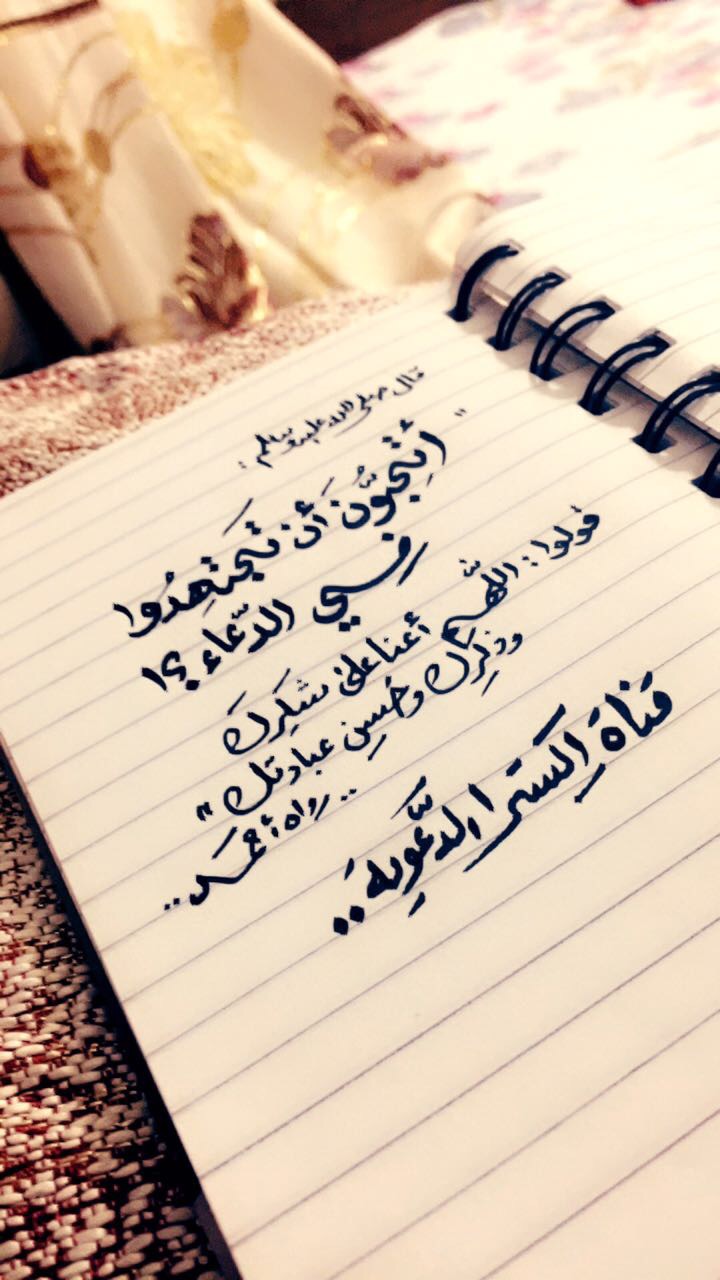 قال صلى الله عليه وسلم :
" أَتُحِبُّونَ أَنْ تَجْتَهِدُوا
فِي الدُّعَاء ؟!
قولوا : اللَّهُمَّ أعنا على شُكْرِكَ
وذِكْرِكَ وحُسنِ عبادتك "
.. رواه أحمد ..
قَناة إكسترا الدَّعَوِية ..